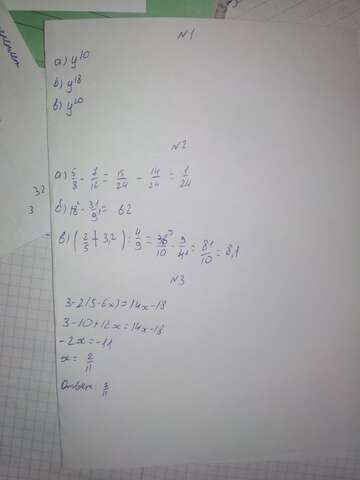 №1
а) y¹⁰
б) y¹⁸
в) y²⁰
№2
а) 5/8 - 7/12 = 15/24 - 14/24 = 1/24
3,2
б) 18² · 31/9¹ = 62
3
в) (2/5 + 3,2) : 4/9 = 36⁹/10 · 9/4¹ = 81/10 = 8,1
№3
3-2(5-6x)=14x-18
3-10+12x=14x-18
-2x=-11
x= 2/11
Ответ: 2/11